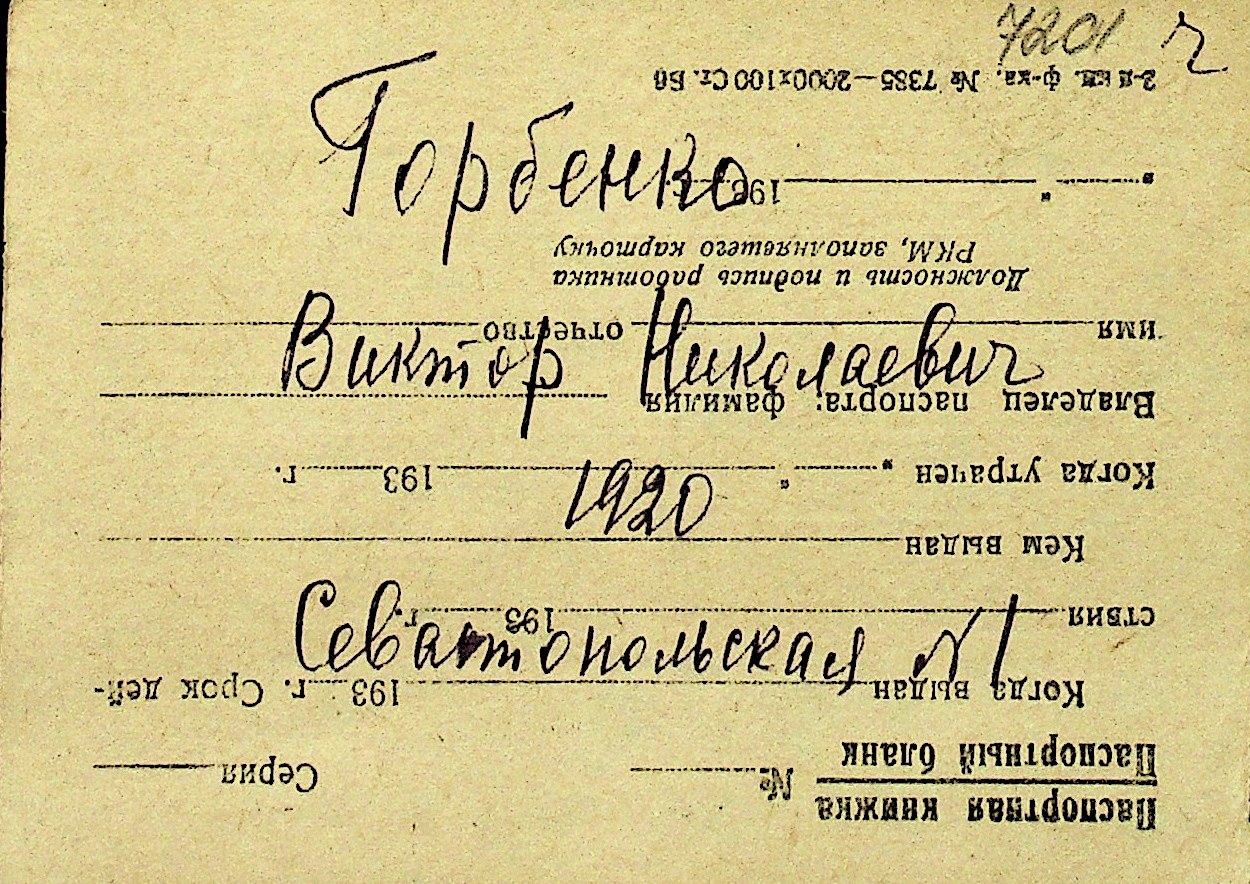 7201 г
Горбенко
Виктор Николаевич
1920
Севастопольская N 1
Паспортная книжка
Паспортный бланк № Серия
Когда выдан 193 г. Срок дей-
ствия 193 г.
Кем выдан
Когда утрачен „ “ 193 г.
Владелец паспорта: фамилия
имя отчество
Должность и подпись работника
РКМ, заполнявшего карточку
„ “ 193 г.
ф-ка. № 7385—2000х100 Ст.